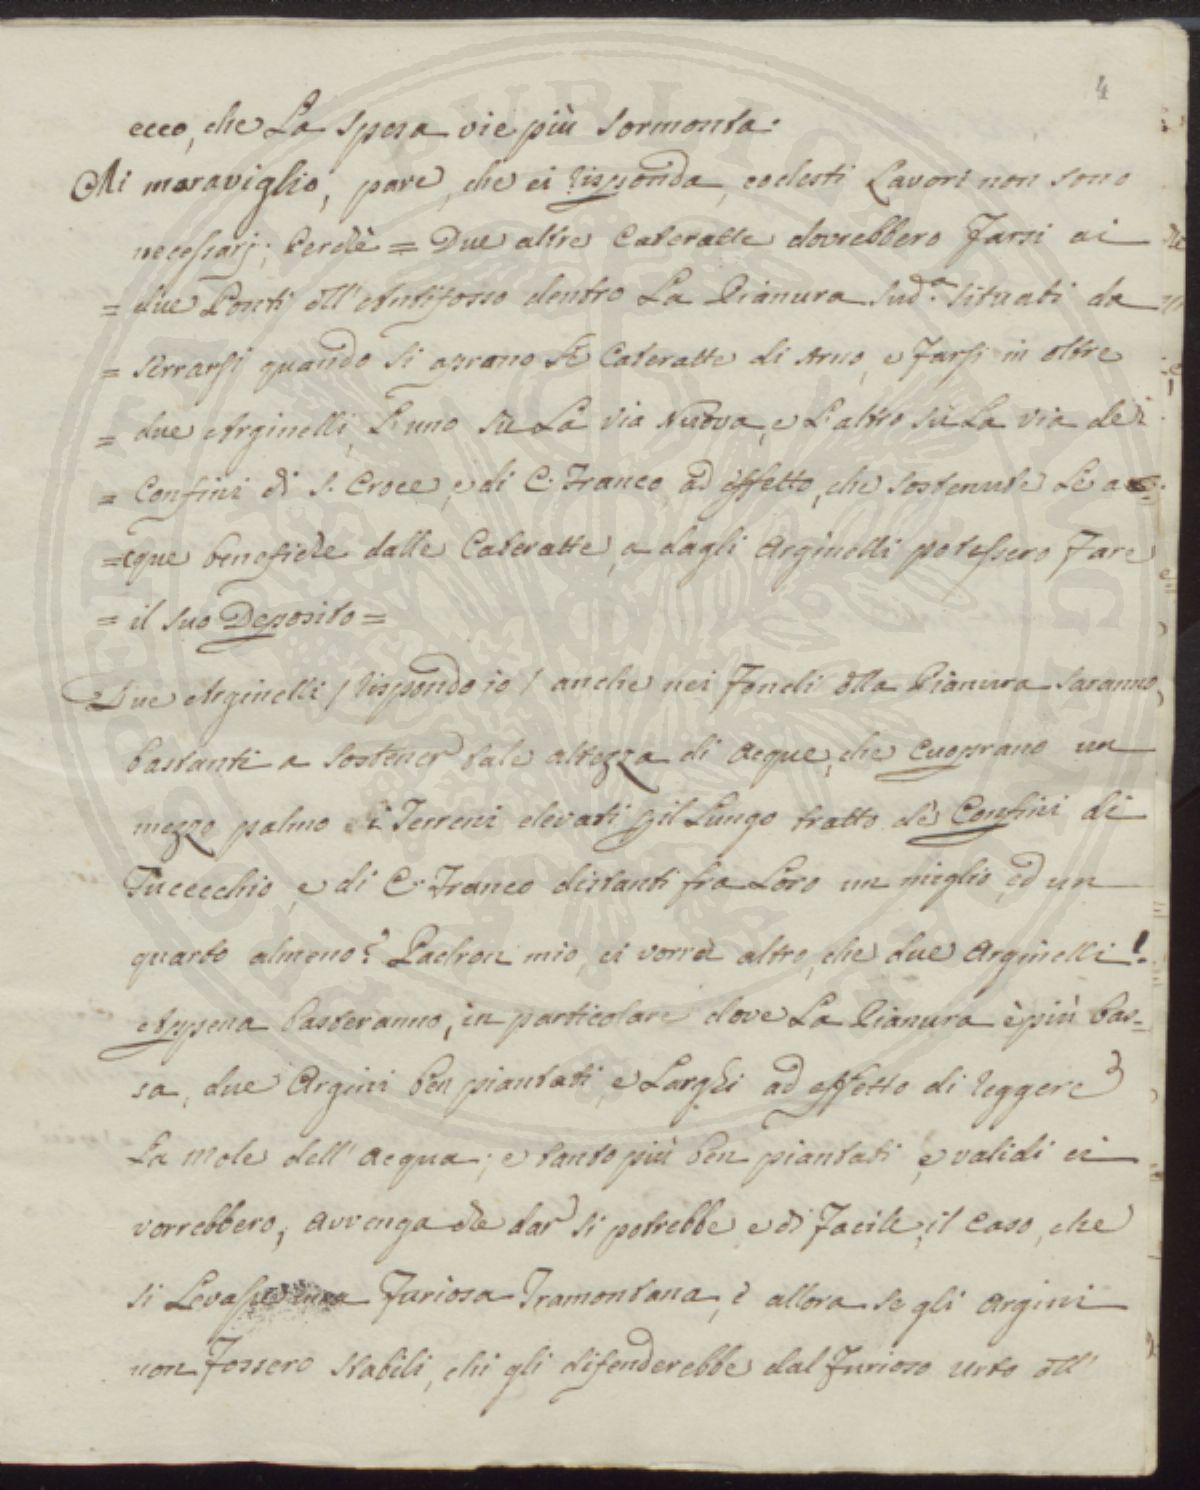 4
ecco, che La spesa vie più sormonta.
Mi maraviglio, pare, che ci risponda, codesti Lavori non sono
necessarj; Perchè = Due altre Cateratte dovrebbero Farsi ai
= due Ponti dll' Antifosso dentro La Pianura sud.a situati da
= serrarsi quando si aprano Le Cateratte di Arno, e Farsi in oltre
= due Arginelli, L'uno su La via Nuova, e L'altro su La via dei
= Confini di S. Croce, e di C. Franco, ad effetto, che sostenute Le a=
= cque benefiche dalle Cateratte, e dagli Arginelli potessero Fare
= il suo Deposito =
Due Arginelli / rispondo io / anche nei Fondi dlla Pianura saranno
bastanti a sostener tale altezza di Acque, che cuoprano un
mezzo palmo i Terreni elevati p il Lungo tratto dè Confini di
Fucecchio, e di C. Franco distanti fra Loro un miglio, ed un
quarto almeno? Padron mio, ci vorrà altro, che due Arginelli!
Appena basteranno, in particolare dove La Pianura è più bas=
sa, due Argini ben piantati, e Larghi ad effetto di reggere
La mole dell' Acqua; e tanto più ben piantati, e validi ci
vorrebbero, Avvenga che dar si potrebbe, e di Facile, il caso, che
si Levasse una Furiosa Tramontana, e allora se gli Argini
non Fossero stabili, chi gli difenderebbe dal Furioso urto dll'